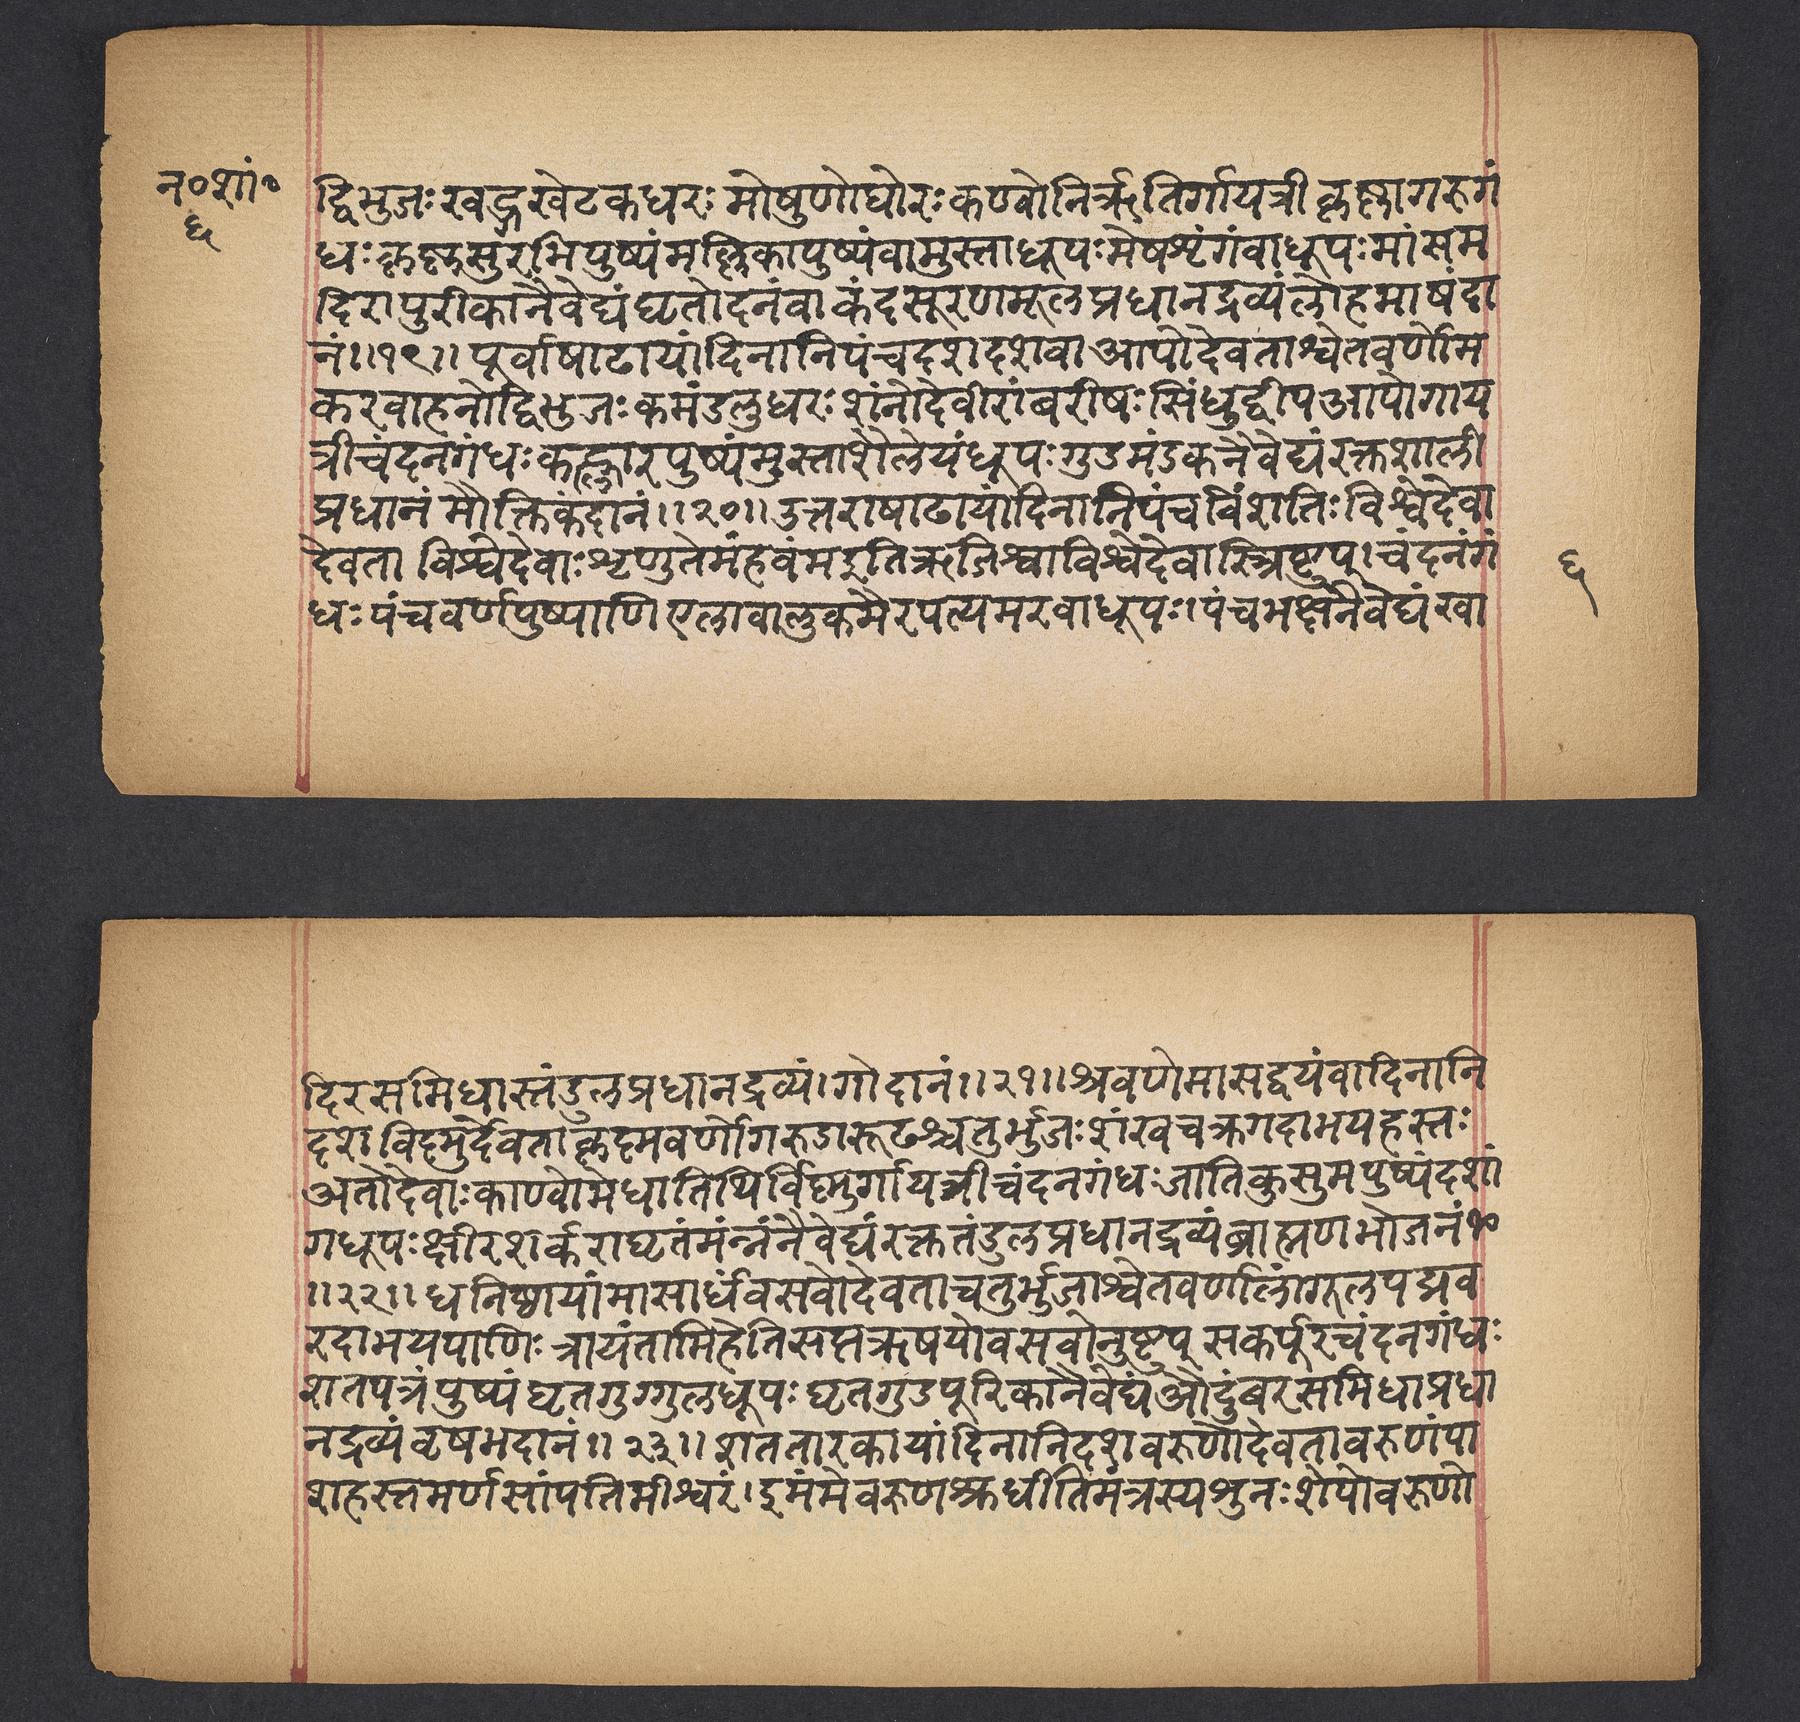 न०शां०
६
द्विभुजःखड्गखेटकधरः मोषुणोघोरःकण्वोनिर्ऋतिर्गायत्री कृष्णागरुगं
धःकृष्णसुरभिपुष्पंमल्लिकापुष्पंवामुस्ताधूपःमेषशृंगंवाधूपःमांसम
दिरापुरीकानैवेद्यंघृतोदनंवा कंदसूरणमूलप्रधानद्रव्यंलोहमाषंदा
नं॥१९॥ पूर्वाषाढायांदिनानिपंचदशदशवा आपोदेवताश्वेतवर्णोम
करवाहनोद्विभुजःकमंडलुधरःशंनोदेवीरांबरीषःसिंधुद्वीपआपोगाय
त्रीचंदनगंधःकह्लारपुष्पंमुस्ताशैलेयंधूपःगुडमंडकनैवेद्यंरक्तशाली
प्रधानं मौक्तिकंदानं॥२०॥उत्तराषाढायांदिनानिपंचविंशतिःविश्वेदेवा
देवता विश्वेदेवाःशृणुतेमंहवंमइतिऋजिश्वाविश्वेदेवास्त्रिष्टुप्।चंदनंगं
धःपंचवर्णपुष्पाणि एलावालुकमैरपत्यमरवाधूपः।पंचभक्षनैवेद्यंखा
६
दिरसमिधास्तंडुलप्रधानद्रव्यं।गोदानं॥२१॥श्रवणेमासद्वयंवादिनानि
दश।विष्णुर्देवता कृष्णवर्णोगरुडारूढश्चतुर्भुजःशंखचक्रगदाभयहस्तः
अतोदेवाःकाण्वोमेधातिथिर्विष्णुर्गायत्रीचंदनगंधःजातिकुसुमपुष्पंदशां
गधूपःक्षीरशर्कराघृतंमंन्नंनैवेद्यंरक्ततंडुलप्रधानद्रव्यंब्राह्मणभोजनं१०
॥२२॥ धनिष्ठायांमासार्धंवसवोदेवताचतुर्भुजाश्वेतवर्णलांगूलपद्मव
रदाभयपाणिः त्रायंतामिहेतिसप्तऋषयोवसवोनुष्टुप् सकर्पूरचंदनगंधः
शतपत्रंपुष्पंघृतगुग्गुलधूपः घृतगुडपूरिकानैवेद्यं औदुंबरसमिधाप्रधा
नद्रव्यंवृषभदानं॥ २३॥ शततारकायांदिनानिदशवरुणोदेवतावरुणंपा
शहस्तमर्णसांपतिमीश्वरं।इमंमेवरुणश्रुधीतिमंत्रस्यशुनःशेपोवरुणो